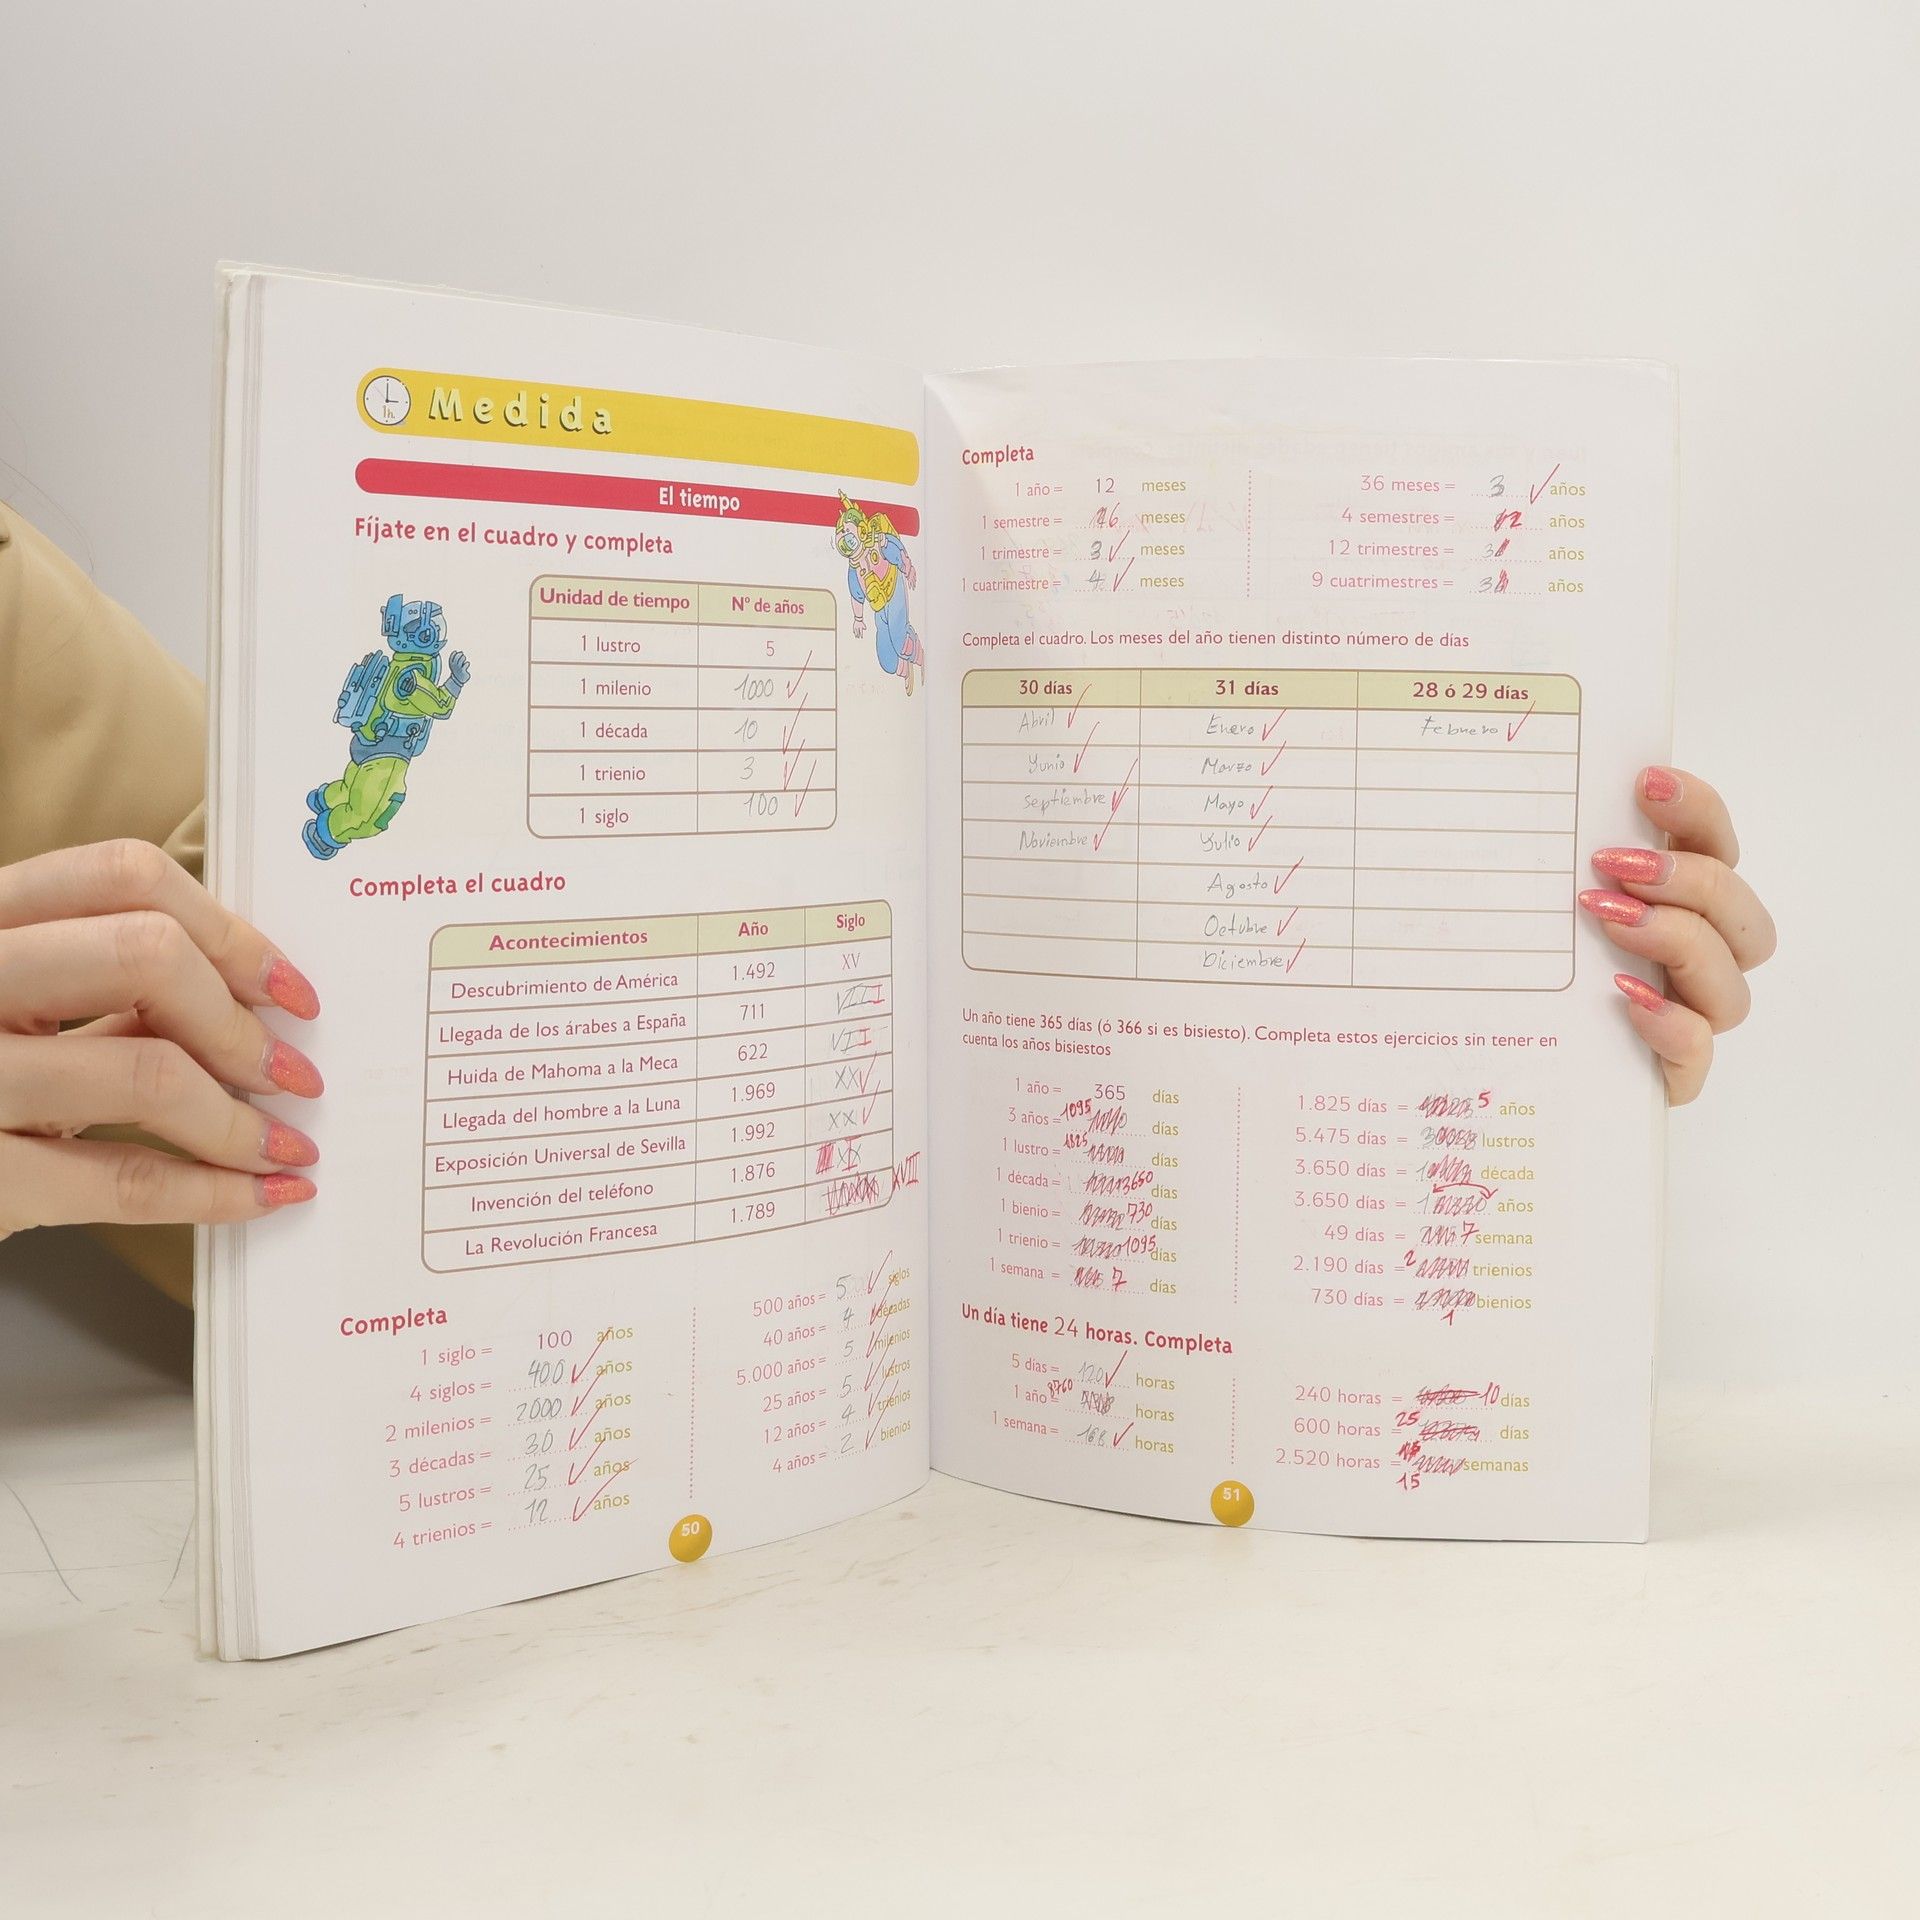 1h.
Medida
El tiempo
Fíjate en el cuadro y completa
Unidad de tiempo Nº de años
1 lustro 5
1 milenio 1000
1 década 10
1 trienio 3
1 siglo 100
Completa el cuadro
Acontecimientos Año Siglo
Descubrimiento de América 1.492 XV
Llegada de los árabes a España 711 VIII
Huida de Mahoma a la Meca 622 VII
Llegada del hombre a la Luna 1.969 XX
Exposición Universal de Sevilla 1.992 XX
Invención del teléfono 1.876
La Revolución Francesa 1.789 XVIII
Completa
1 siglo = 100 años
4 siglos = 400 años
2 milenios = 2000 años
3 décadas = 30 años
5 lustros = 25 años
4 trienios = 12 años
500 años = 5 siglos
40 años = 4 décadas
5.000 años = 5 milenios
25 años = 5 lustros
12 años = 4 trienios
4 años = 2 bienios
50
Completa
1 año = 12 meses
1 semestre = 6 meses
1 trimestre = 3 meses
1 cuatrimestre = 4 meses
36 meses = 3 años
4 semestres = 2 años
12 trimestres = 3 años
9 cuatrimestres = 3 años
Completa el cuadro. Los meses del año tienen distinto número de días
30 días 31 días 28 ó 29 días
Abril Enero Febrero
Yunio Marzo
Septiembre Mayo
Noviembre Yulio
Agosto
Octubre
Diciembre
Un año tiene 365 días (ó 366 si es bisiesto). Completa estos ejercicios sin tener en
cuenta los años bisiestos
1 año = 365 días
3 años = 1095 días
1 lustro = 1825 días
1 década = 3650 días
1 bienio = 730 días
1 trienio = 1095 días
1 semana = 7 días
1.825 días = 5 años
5.475 días = 3 lustros
3.650 días = 1 década
3.650 días = 10 años
49 días = 7 semana
2.190 días = 2 trienios
730 días = 1 bienios
Un día tiene 24 horas. Completa
5 días = 120 horas
1 año = 8760 horas
1 semana = 168 horas
240 horas = 10 días
600 horas = 25 días
2.520 horas = 15 semanas
51